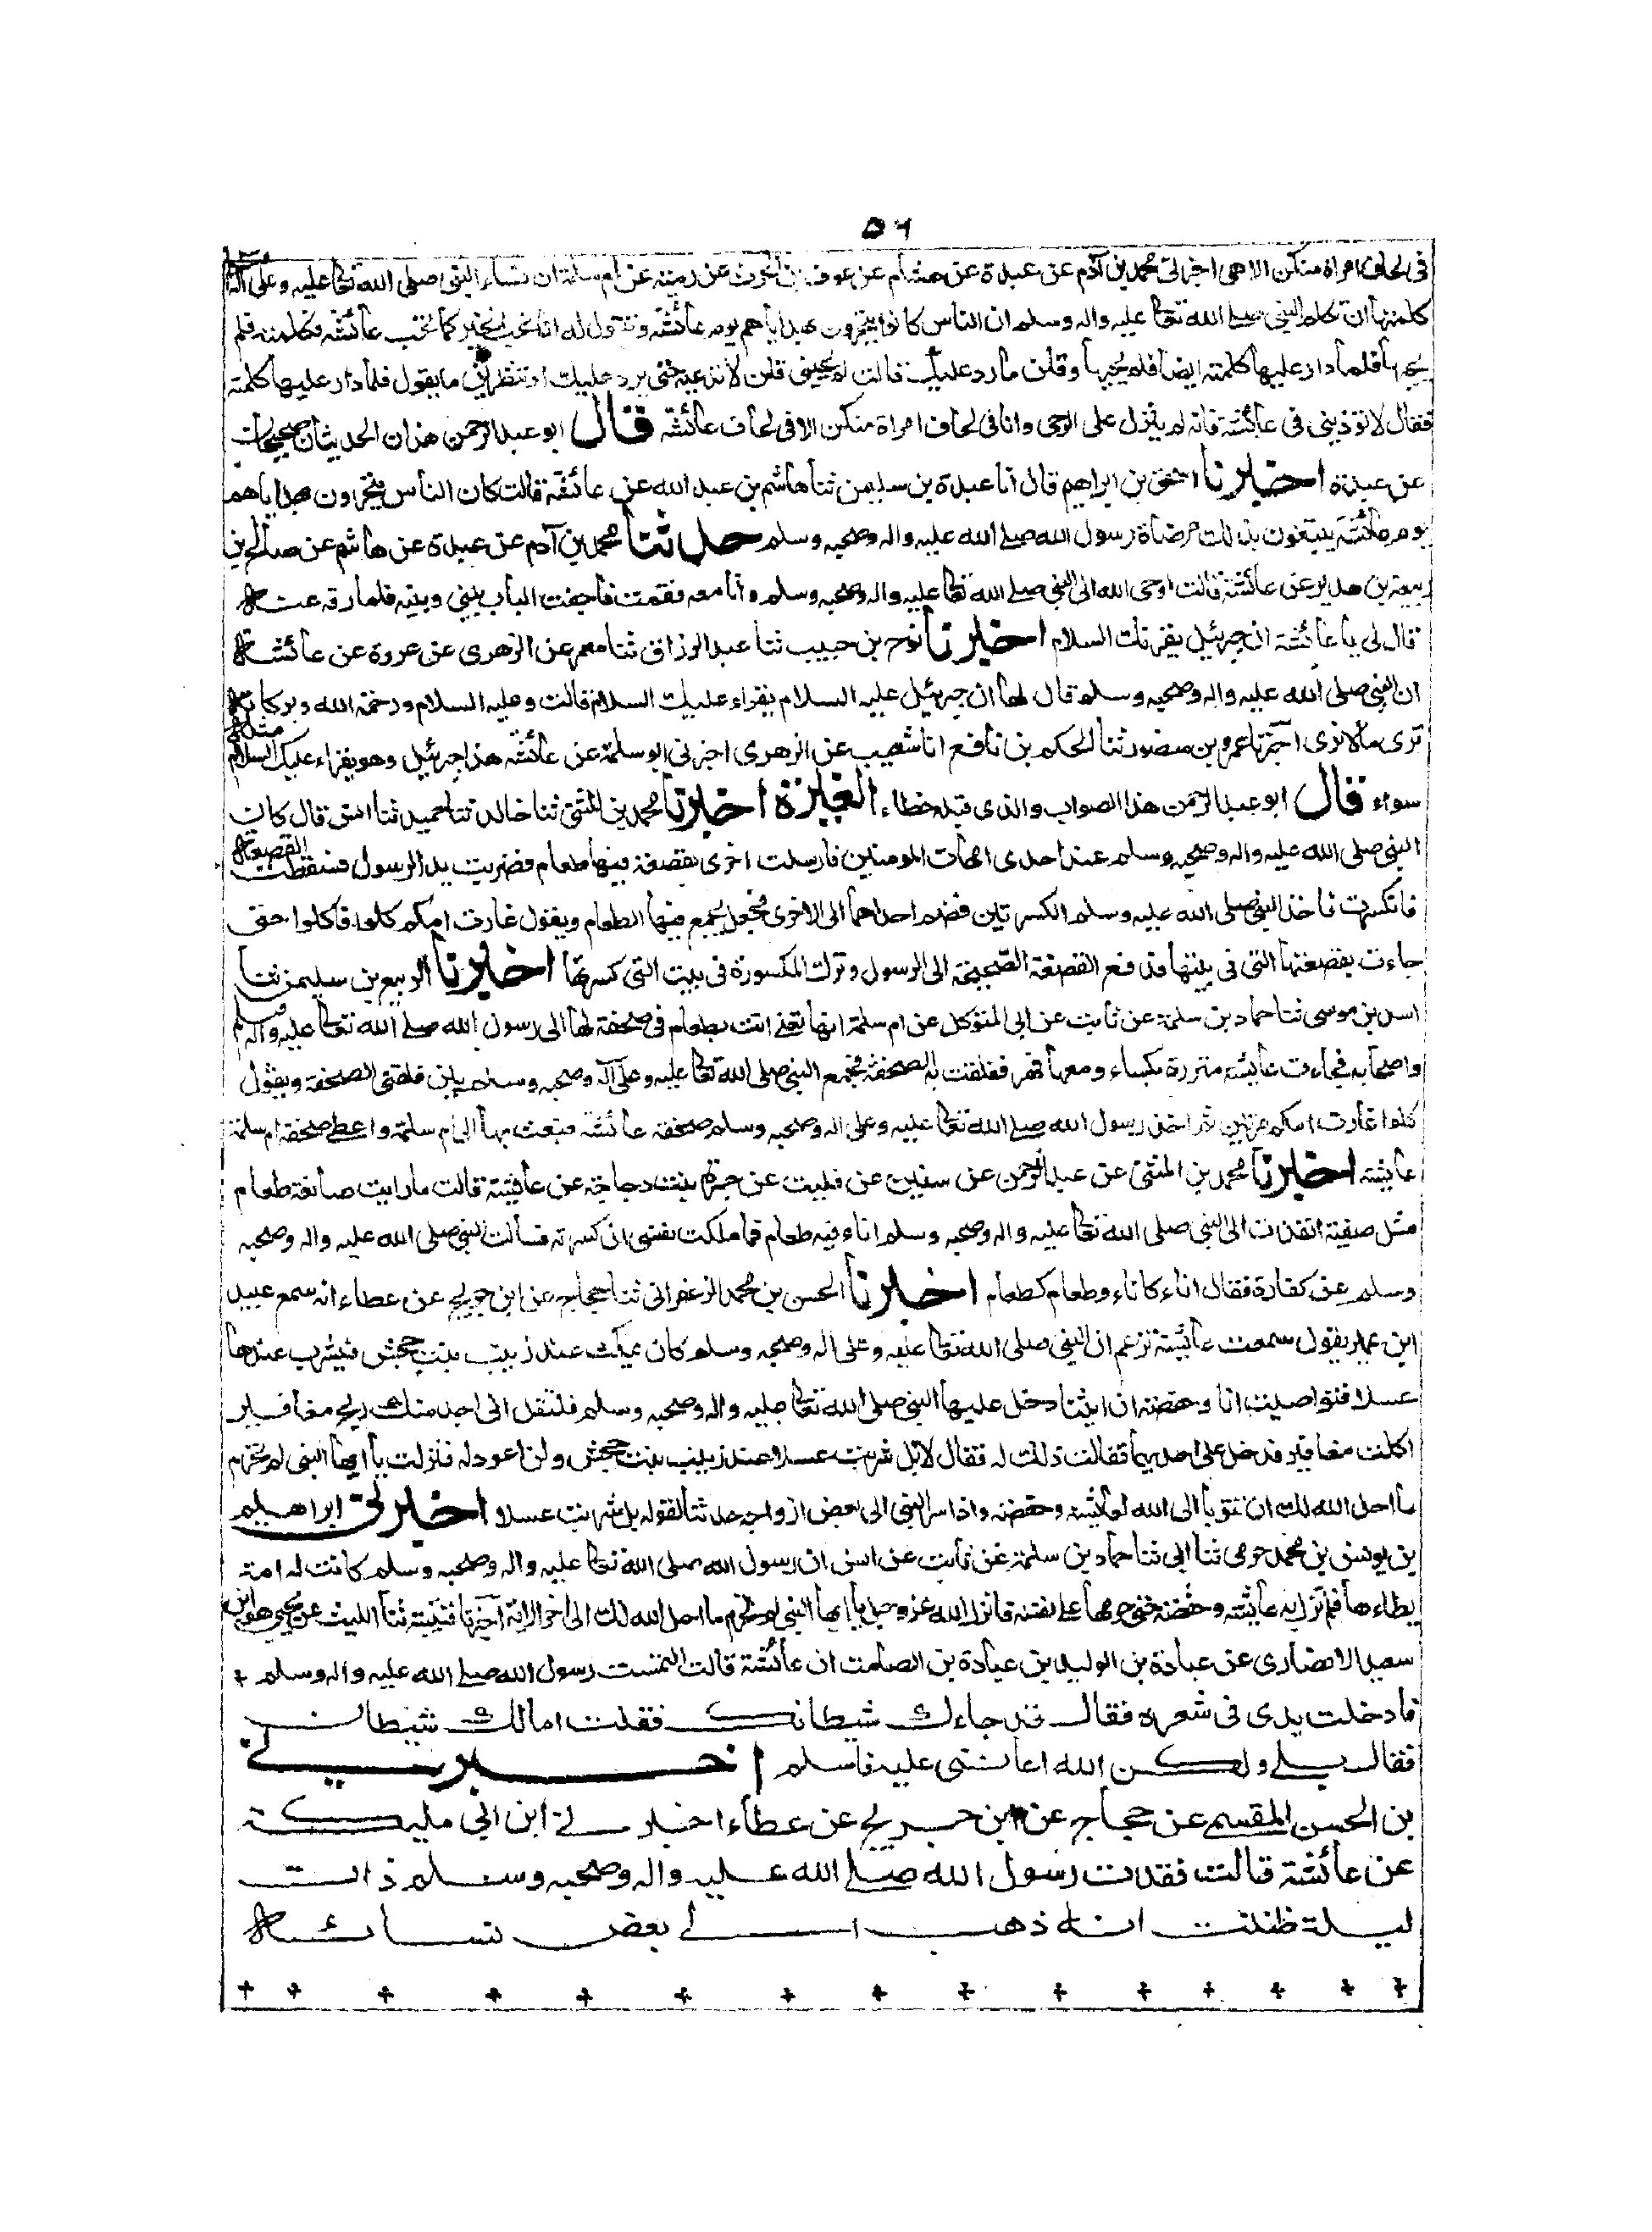 ٥٦
فى لحاف امراة منكن الا هى اخبرنى محمد بن آدم عن عبدة عن هشام عن عوف بن الحرث عن رميثة عن ام سلمة ان نساء النبى صلى الله تعا عليه وعلى آله
كلمنها ان تكلم النبى صلے الله تعا عليه واله وسلم ان الناس كانوا يتحرون هداياهم يوم عائشة وتقول له انا نحب الخير كما تحب عائشة فكلمته فلم
يجبها فلما دار عليها كلمته ايضا فلم يجبها وقلن ما رد عليك قالت لم يجبنى قلن لا تدعيه حتى يرد عليك او تنظرين ما يقول فلما دار عليها كلمته
فقال لا تؤذينى فى عائشة فانه لم ينزل على الوحى وانا فى لحاف امراة منكن الا فى لحاف عائشة قال ابو عبد الرحمن هذان الحديثان صحيحان
عن عبدة اخبرنا اسحق بن ابراهيم قال انا عبدة بن سليمن ثنا هاشم بن عبد الله عن عائشة قالت كان الناس يتحرون هداياهم
يوم عائشة يبتغون بذلك مرضاة رسول الله صلے الله عليه واله وصحبه وسلم حدثنا محمد بن آدم عن عبدة عن هاشم عن صالح بن
ربيعة بن هدير عن عائشة قالت اوحى الله الى النبى صلے الله تعا عليه واله وصحبه وسلم وانا معه فقمت فاجفت الباب بينى وبينه فلما رفه عنه
قال لى يا عائشة ان جبرئيل يقرئك السلام اخبرنا نوح بن حبيب ثنا عبد الرزاق ثنا معمر عن الزهرى عن عروة عن عائشة
ان النبى صلى الله عليه واله وصحبه وسلم قال لها ان جبرئيل عليه السلام يقراء عليك السلام قالت وعليه السلام ورحمة الله وبركاته
ترى ما لا نرى اخبرنا عمرو بن منصور ثنا الحكم بن نافع انا شعيب عن الزهرى اخبرنى ابو سلمة عن عائشة هذا جبرئيل وهو يقراء عليك السلام مثله
سواء قال ابو عبد الرحمن هذا الصواب والذى قبله خطاء الغيرة اخبرنا محمد بن المثنى ثنا خالد ثنا حميد ثنا انس قال كان
النبى صلى الله عليه واله وصحبه وسلم عند احدى امهات المومنين فارسلت اخرى بقصعة فيها طعام فضربت يد الرسول فسقطت القصعة
فانكسرت فاخذ النبى صلى الله عليه وسلم الكسرتين فضم احداهما الى الاخرى فجعل يجمع فيها الطعام ويقول غارت امكم كلوا فاكلوا حتى
جاءت بقصعتها التى فى بيتها فدفع القصعة الصحيحة الى الرسول وترك المكسورة فى بيت التى كسرتها اخبرنا الربيع بن سليمن ثنا
اسد بن موسى ثنا حماد بن سلمة عن ثابت عن ابى المتوكل عن ام سلمة انها يعنے اتت بطعام فى صحفة لها الى رسول الله صلے الله تعا عليه واله وسلم
واصحابه فجاءت عائشة متزرة بكساء ومعها فهر ففلقت به الصحفة فجمع النبى صلى الله تعا عليه وعلى آله وصحبه وسلم بين فلقتى الصحفة ويقول
كلوا غارت امكم مرتين ثم اخذ رسول الله صلے الله تعا عليه وعلى اله وصحبه وسلم صحفة عائشة فبعث بها الى ام سلمة واعطى صحفة ام سلمة
عائشة اخبرنا محمد بن المثنى عن عبد الرحمن عن سفين عن فليت عن جسرة بنت دجاجة عن عائشة قالت ما رايت صانعة طعام
مثل صفية اتفدت الى النبى صلى الله تعا عليه واله وصحبه وسلم اناء فيه طعام فما ملكت نفسى ان كسرته فسالت النبى صلى الله عليه واله وصحبه
وسلم عن كفارة فقال اناء كاناء وطعام كطعام اخبرنا الحسن بن محمد الزعفرانى ثنا حجاج عن ابن جريج عن عطاء انه سمع عبيد
ابن عمير يقول سمعت عائشة تزعم ان النبى صلى الله تعا عليه وعلى اله وصحبه وسلم كان يمكث عند زينب بنت جحش فيشرب عندها
عسلا فتواصيت انا وحفصة ان ايتنا دخل عليها النبى صلى الله تعا عليه واله وصحبه وسلم فلتقل انى اجد منك ريح مغافير
اكلت مغافير فدخل على احديهما فقالت ذلك له فقال لا بل شربت عسلا عند زينب بنت جحش ولن اعود له فنزلت يا ايها النبى لم تحرم
ما احل الله لك ان تتوبا الى الله لعائشة وحفصة واذ اسر النبى الى بعض ازواجه حديثا لقوله بل شربت عسلا اخبرنى ابراهيم
بن يونس بن محمد حرمى ثنا ابى ثنا حماد بن سلمة عن ثابت عن انس ان رسول الله صلى الله تعا عليه واله وصحبه وسلم كانت له امة
يطاءها فلم تزل به عائشة وحفصة حتى حرمها على نفسه فانزل الله عز وجل يا ايها النبى لم تحرم ما احل الله لك الى اخر الاية اخبرنا قتيبة ثنا الليث عن يحيى هو ابن
سعيد الانصارى عن عبادة بن الوليد بن عبادة بن الصامت ان عائشة قالت التمست رسول الله صلے الله عليه واله وسلم +
فادخلت يدى فى شعره فقال قد جاءك شيطانك فقلت امالك شيطان
فقال بلے ولكن الله اعاننى عليه فاسلم اخبرنے
بن الحسن المقسم عن حجاج عن ابن جريج عن عطاء اخبرنے ابن ابى مليكة
عن عائشة قالت فقدت رسول الله صلے الله عليه واله وصحبه وسلم ذات
ليلة ظننت انه ذهب الے بعض نسائه
+ + + + + + + + + + + + + + +